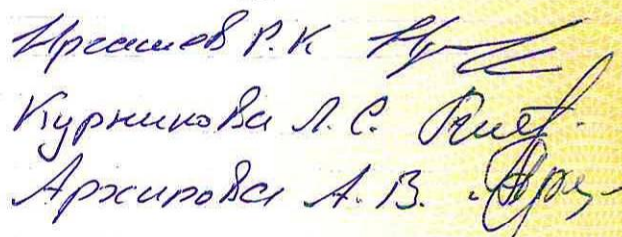 Иргашев Р.К
Курникова Л.С.
Архипова А.В.